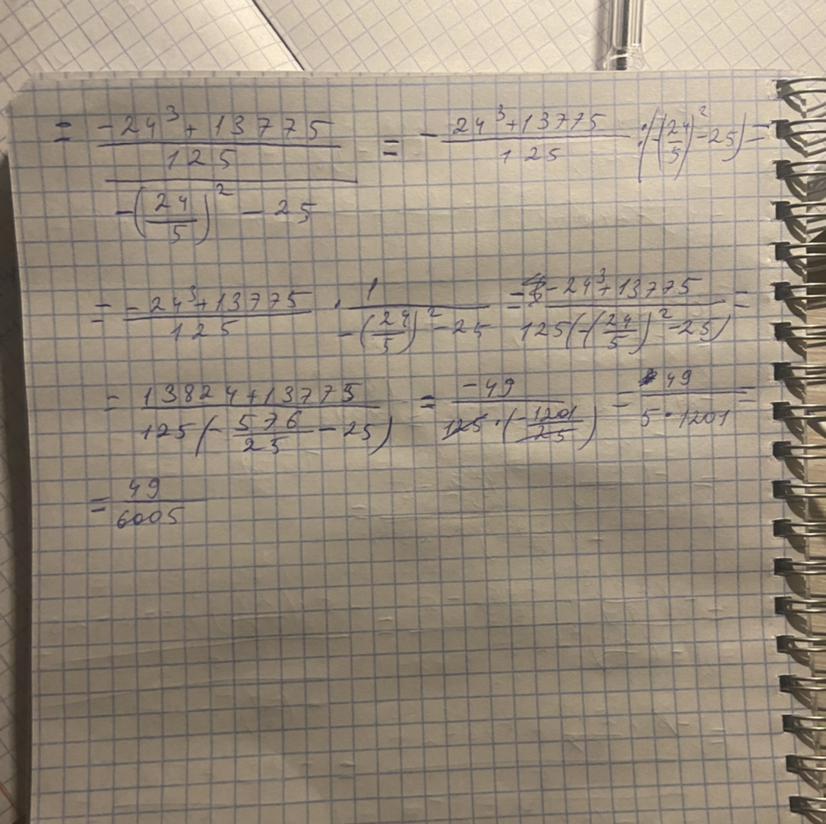 = \frac{\frac{-24^3+13775}{125}}{-\left(\frac{24}{5}\right)^2-25} = -\frac{24^3+13775}{125} : \left(-\left(\frac{24}{5}\right)^2-25\right) =
= \frac{-24^3+13775}{125} \cdot \frac{1}{-\left(\frac{24}{5}\right)^2-25} = \frac{-24^3+13775}{125\left(-\left(\frac{24}{5}\right)^2-25\right)} =
= \frac{13824+13775}{125\left(-\frac{576}{25}-25\right)} = \frac{-49}{125 \cdot \left(-\frac{1201}{25}\right)} = \frac{49}{5 \cdot 1201} =
= \frac{49}{6005}